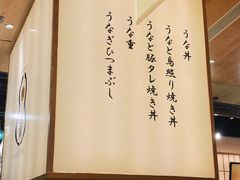 うな丼
うなと鳥照り焼き丼
うなと豚タレ焼き丼
うな重
うなぎひつまぶし